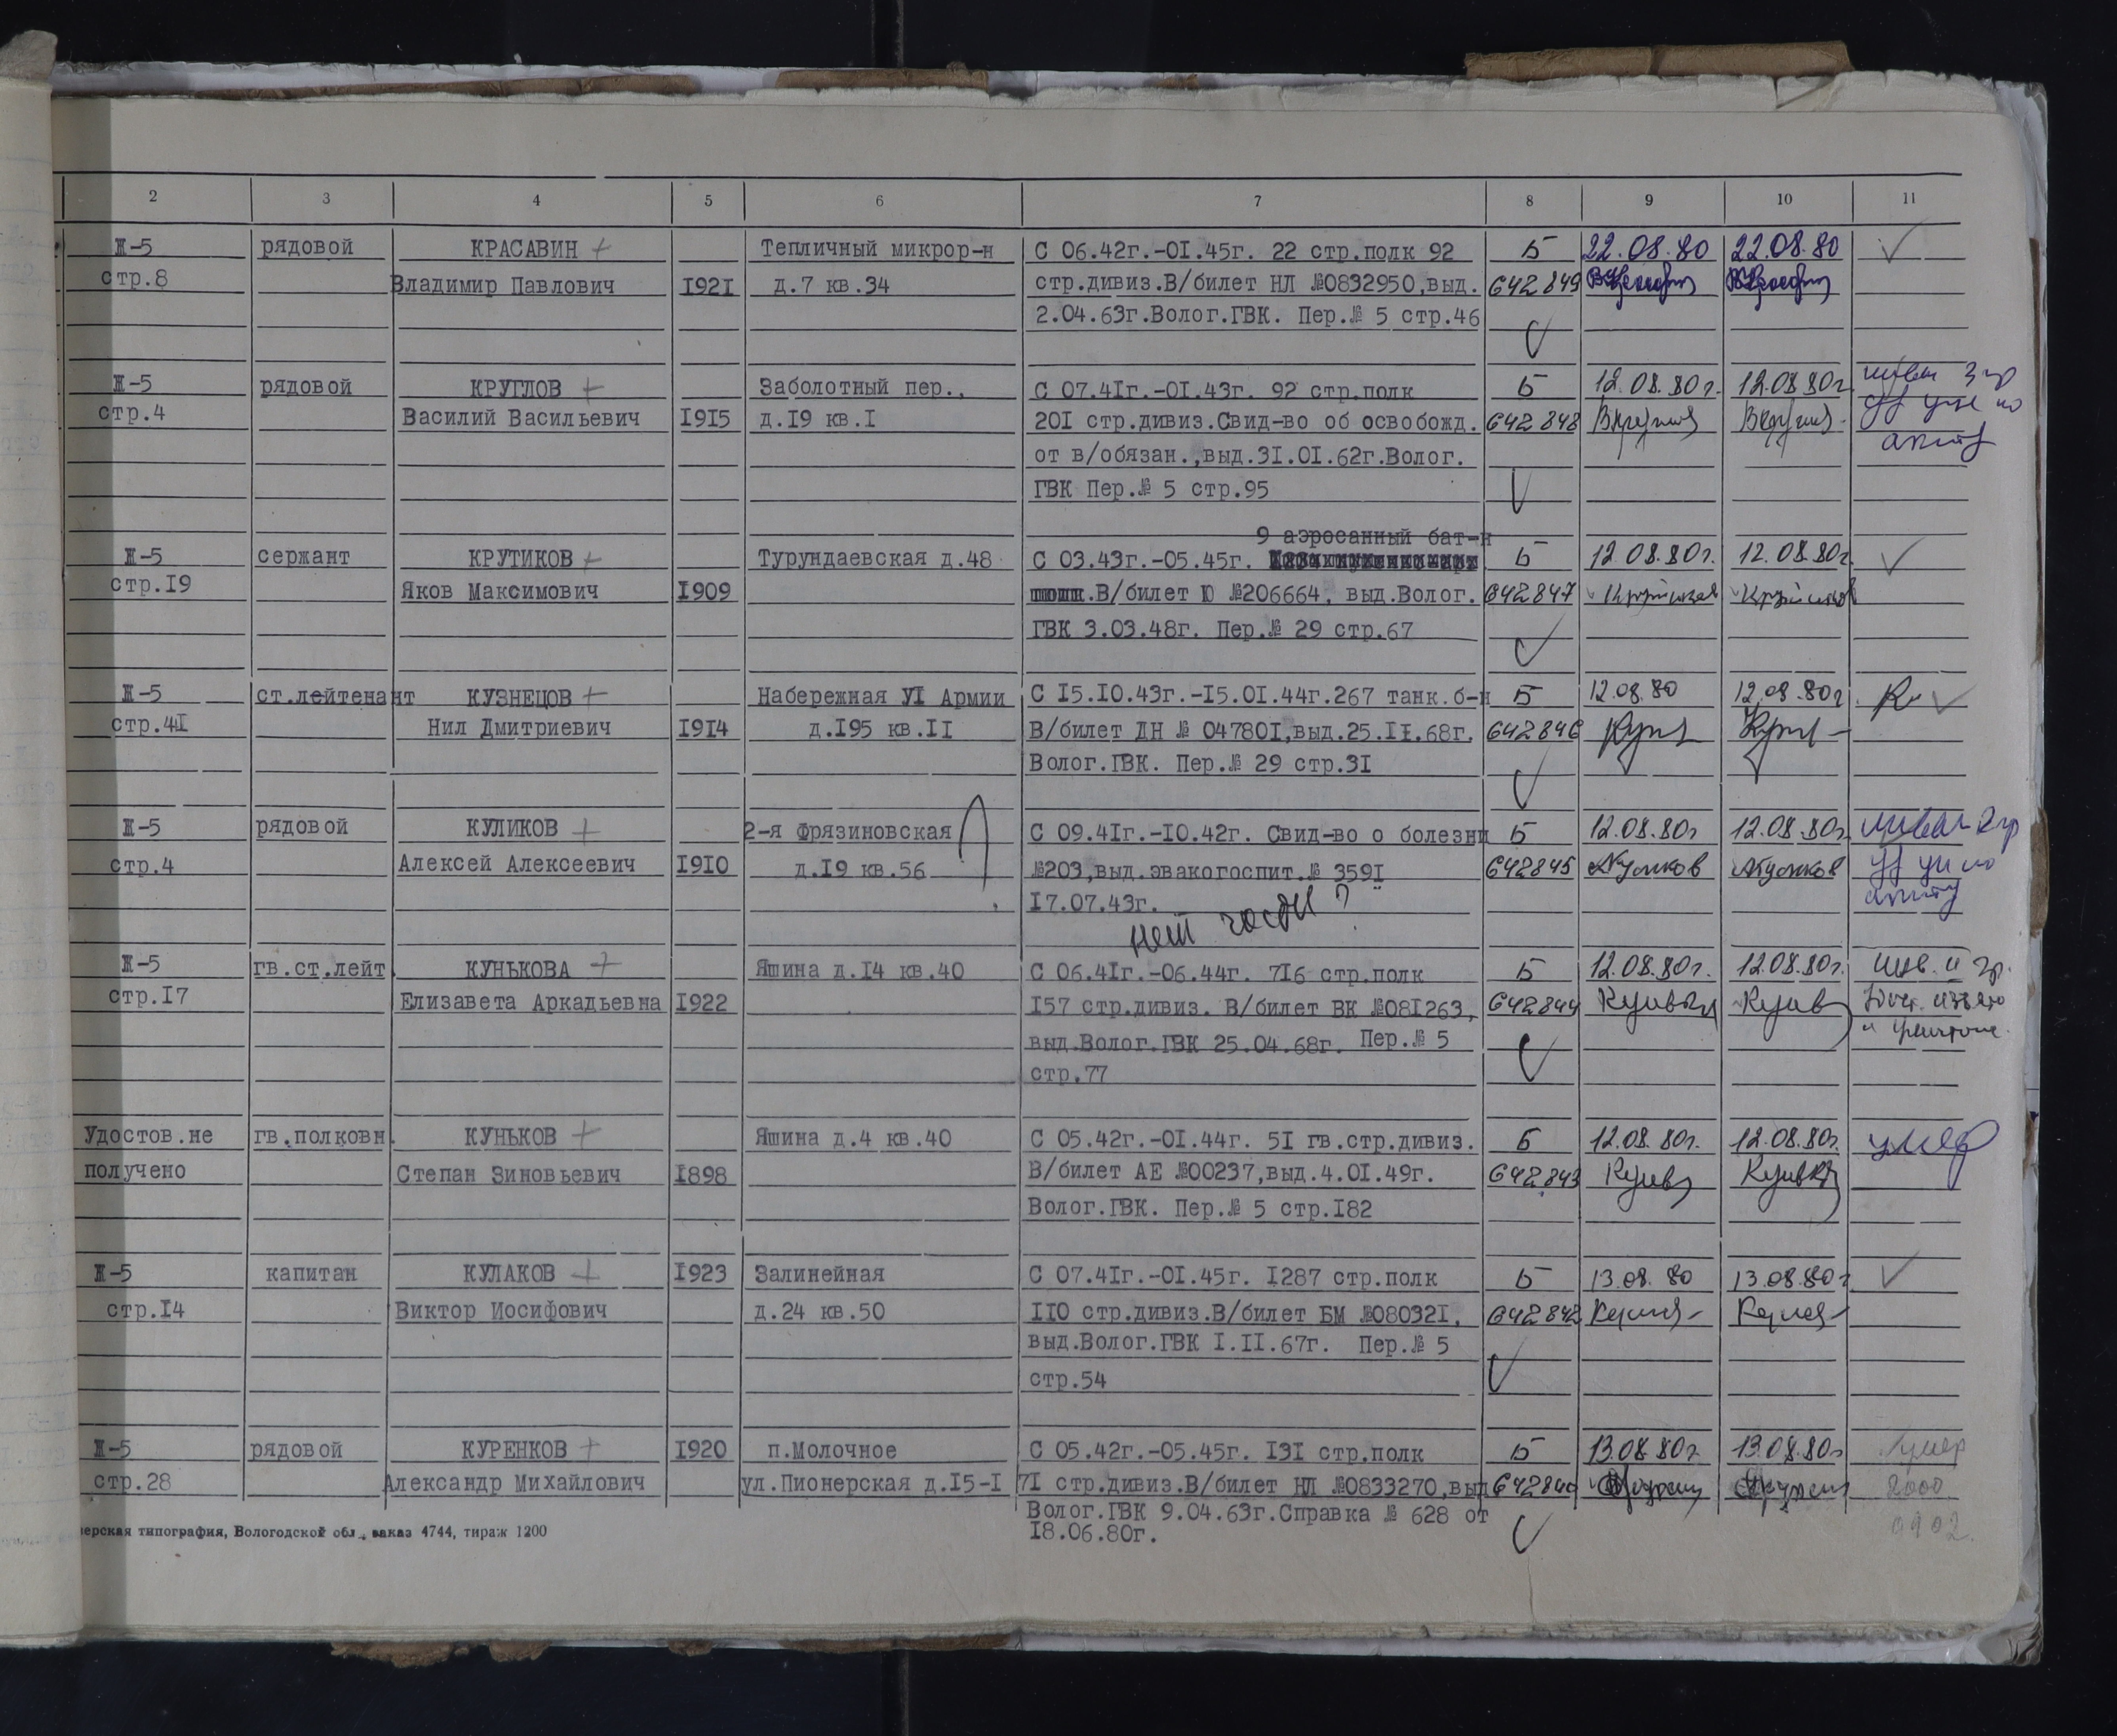 2 3 4 5 6 7 8 9 10 11
Ж-5 рядовой КРАСАВИН + Тепличный микрор-н С 06.42г.-01.45г. 22 стр.полк 92 Б 22.08.80 22.08.80
стр.8 Владимир Павлович 1921 д.7 кв.34 стр.дивиз.В/билет НЛ №0832950,выд. 642849
2.04.63г.Волог.ГВК. Пер.№ 5 стр.46
Ж-5 рядовой КРУГЛОВ + Заболотный пер., С 07.41г.-01.43г. 92 стр.полк Б 12.08.80г. 12.08.80г.
стр.4 Василий Васильевич 1915 д.19 кв.1 201 стр.дивиз.Свид-во об освобожд. 642848
от в/обязан.,выд.31.01.62г.Волог.
ГВК Пер.№ 5 стр.95
9 аэросанный бат-н
Ж-5 сержант КРУТИКОВ + Турундаевская д.48 С 03.43г.-05.45г. Б 12.08.80г. 12.08.80г.
стр.19 Яков Максимович 1909 В/билет Ю №206664, выд.Волог. 642847
ГВК 3.03.48г. Пер.№ 29 стр.67
Ж-5 ст.лейтенант КУЗНЕЦОВ + Набережная УІ Армии С 15.10.43г.-15.01.44г.267 танк.б-н Б 12.08.80 12.08.80г
стр.41 Нил Дмитриевич 1914 д.195 кв.11 В/билет ДН № 047801,выд.25.11.68г. 642846
Волог.ГВК. Пер.№ 29 стр.31
Ж-5 рядовой КУЛИКОВ + 2-я Фрязиновская С 09.41г.-10.42г. Свид-во о болезни Б 12.08.80г 12.08.80г.
стр.4 Алексей Алексеевич 1910 д.19 кв.56 №203,выд.эвакогоспит.№ 3591 642845 АКуликов АКуликов
17.07.43г.
нет части?
Ж-5 гв.ст.лейт. КУНЬКОВА + Яшина д.14 кв.40 С 06.41г.-06.44г. 716 стр.полк Б 12.08.80г. 12.08.80г. инв. II гр.
стр.17 Елизавета Аркадьевна 1922 157 стр.дивиз. В/билет ВК №081263, 642844
выд.Волог.ГВК 25.04.68г. Пер.№ 5
стр.77
Удостов.не гв.полковн. КУНЬКОВ + Яшина д.4 кв.40 С 05.42г.-01.44г. 51 гв.стр.дивиз. Б 12.08.80г. 12.08.80г. умер
получено Степан Зиновьевич 1898 В/билет АЕ №00237,выд.4.01.49г. 642843
Волог.ГВК. Пер.№ 5 стр.182
Ж-5 капитан КУЛАКОВ + 1923 Залинейная С 07.41г.-01.45г. 1287 стр.полк Б 13.08.80 13.08.80г.
стр.14 Виктор Иосифович д.24 кв.50 110 стр.дивиз.В/билет БМ №080321, 642842
выд.Волог.ГВК 1.11.67г. Пер.№ 5
стр.54
Ж-5 рядовой КУРЕНКОВ + 1920 п.Молочное С 05.42г.-05.45г. 131 стр.полк Б 13.08.80г. 13.08.80г умер
стр.28 Александр Михайлович ул.Пионерская д.15-1 71 стр.дивиз.В/билет НЛ №0833270,выд 2000
Волог.ГВК 9.04.63г.Справка № 628 от
18.06.80г. 0902.
ерская типография, Вологодской обл., заказ 4744, тираж 1200